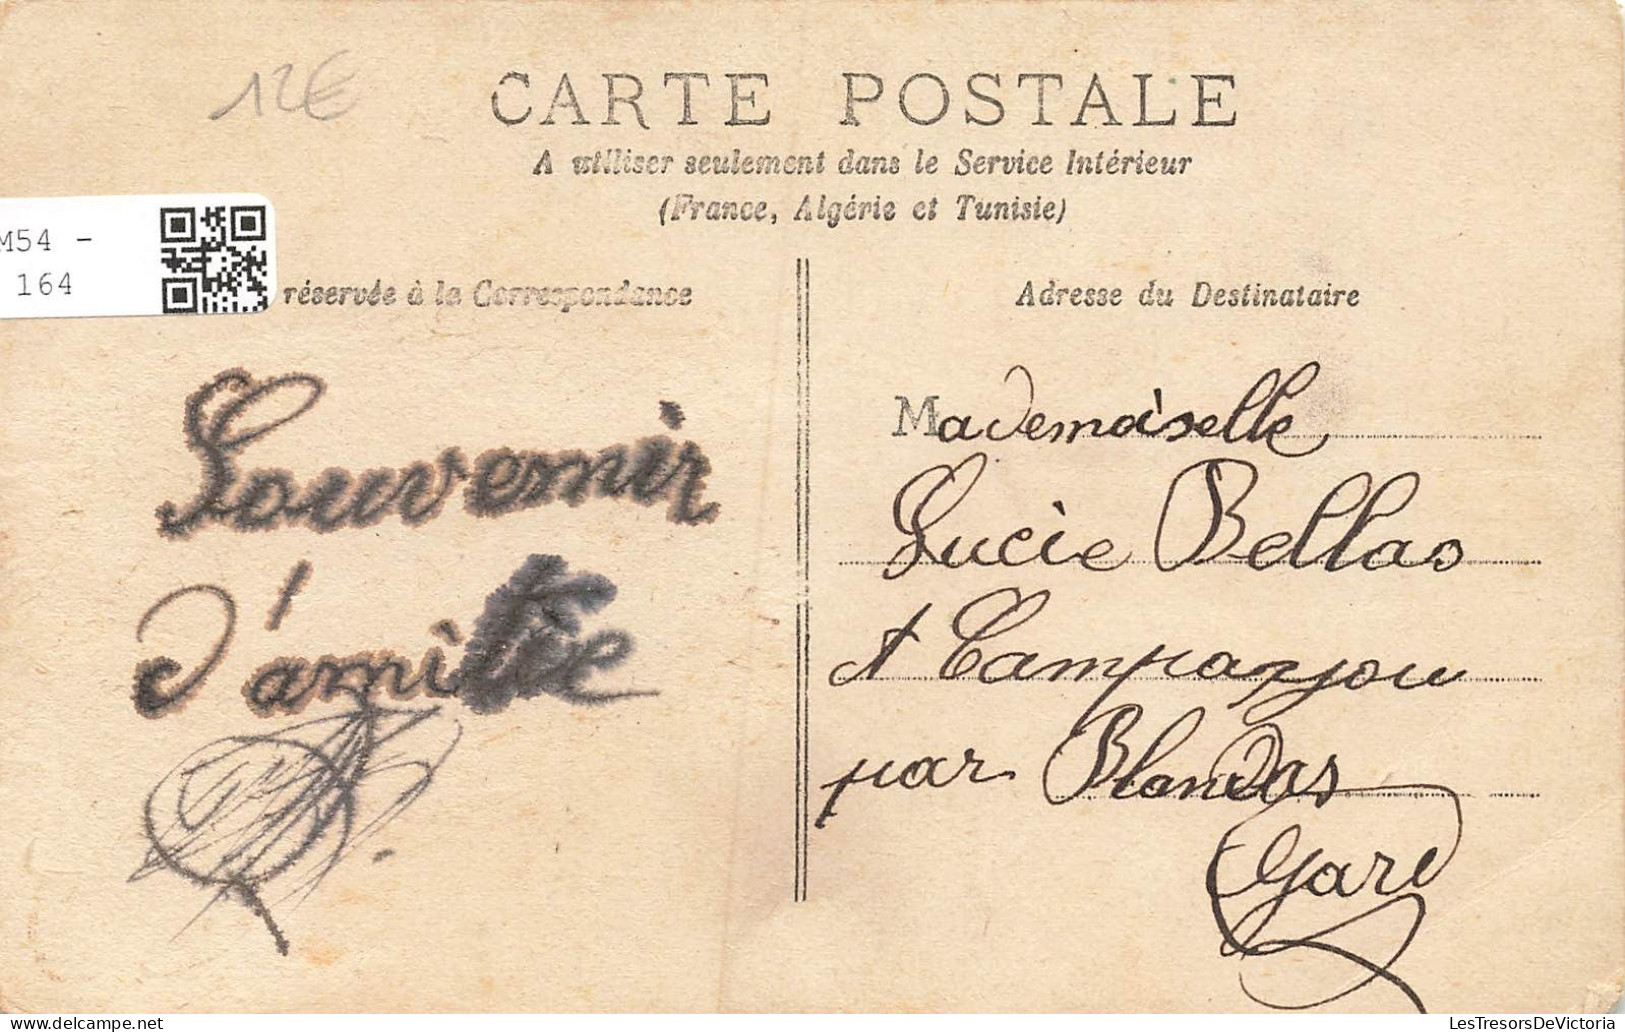 12€
CARTE POSTALE
A utiliser seulement dans le Service Intérieur
(France, Algérie et Tunisie)
M54 -
164
réservée à la Correspondance
Adresse du Destinataire
Souvenir
d'amitée
Mademoiselle
Lucie Bellas
A Campazjou
par Blandas
Gard
LesTresorsDeVictoria